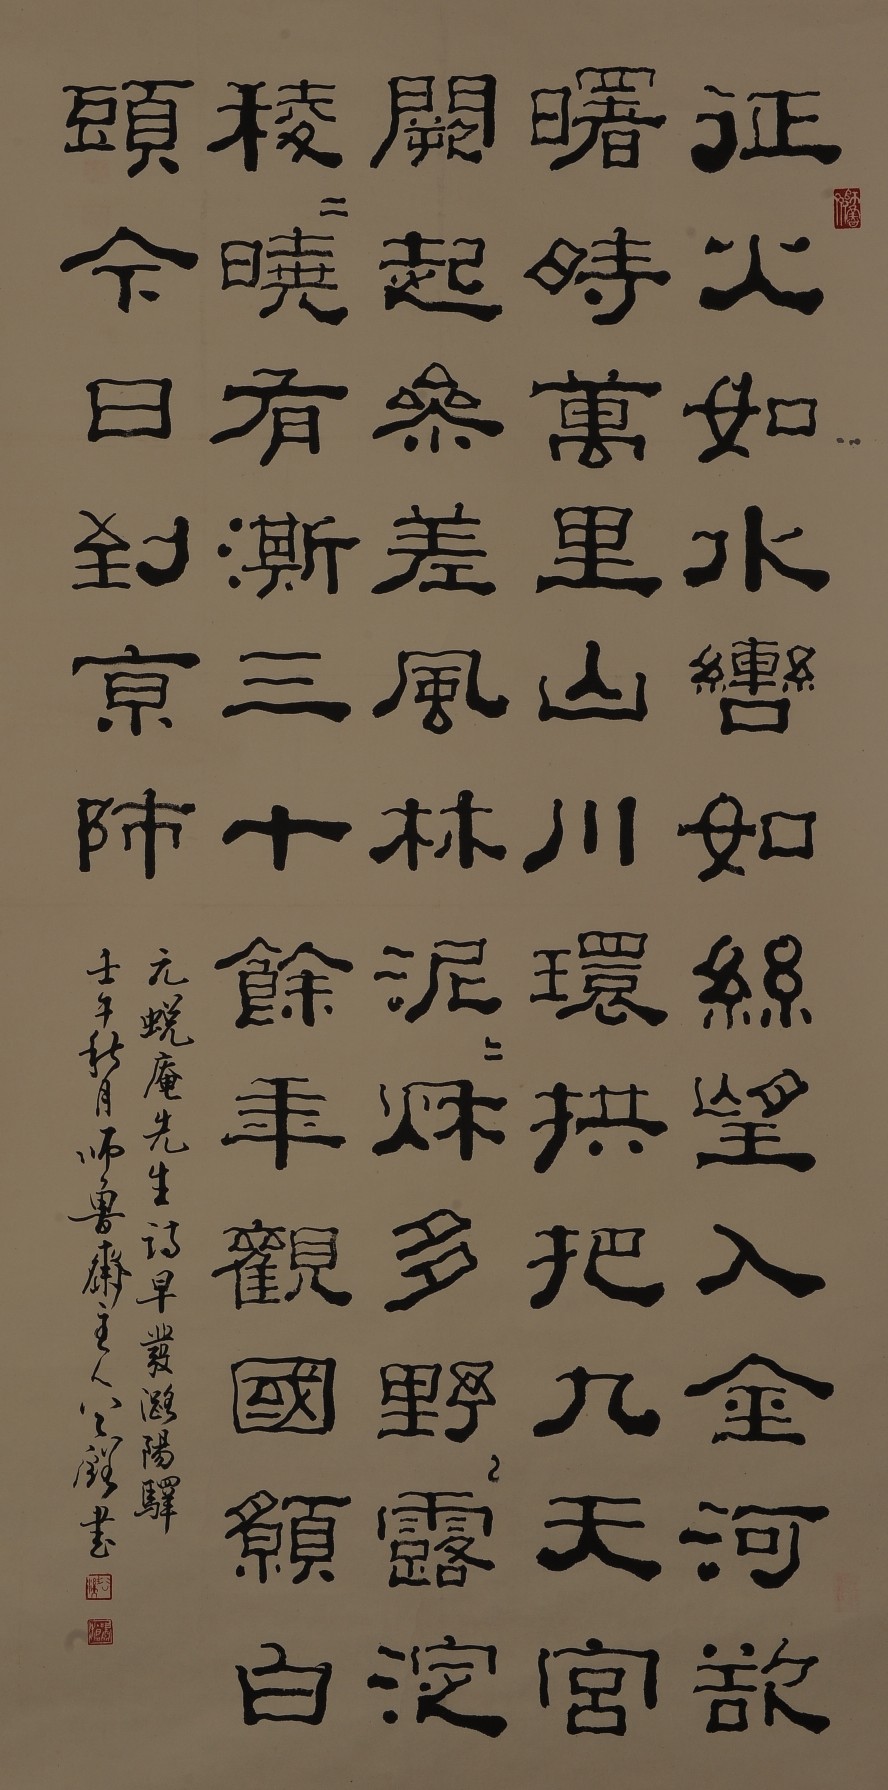 征火如水轡如絲望入金河欲
曙時萬里山川環拱把九天宮
闕起參差風林泥〻秌多野露淀
稜〻曉有澌三十餘年觀國願白
頭今日到京師
元蛻庵先生詩早發潞陽驛
壬午秋月师魯齋主人書